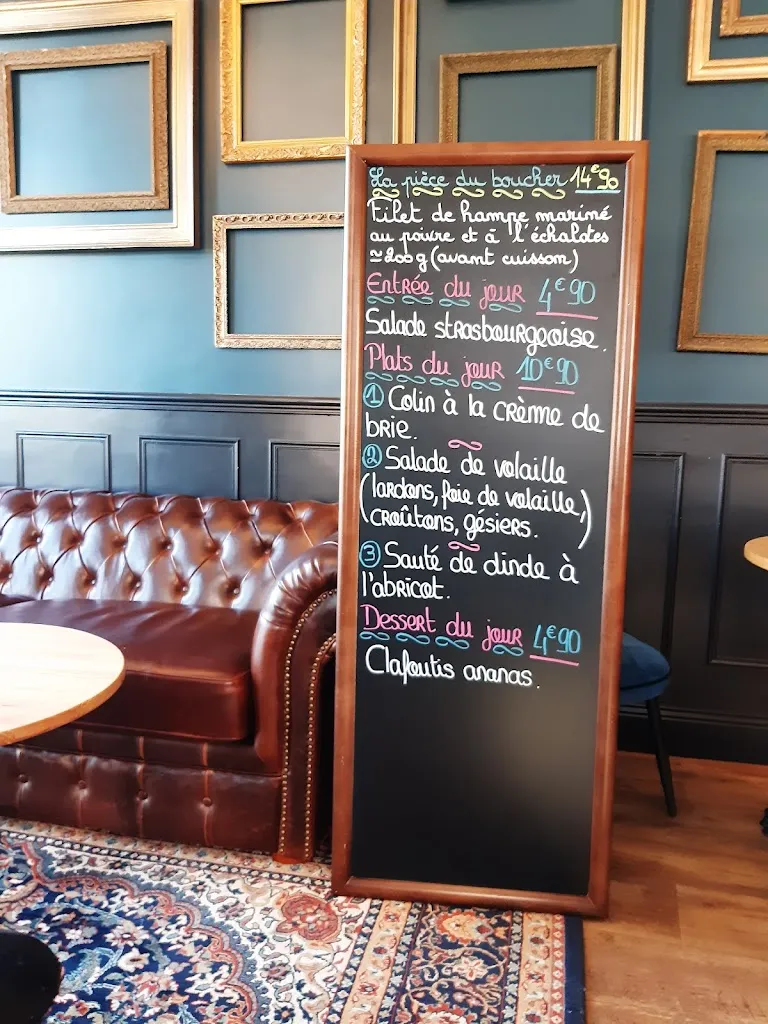 La pièce du boucher 14€90
Filet de hampe mariné
au poivre et à l'échalotes
≃200g (avant cuisson)
Entrée du jour 4€90
Salade strasbourgeoise.
Plats du jour 10€90
① Colin à la crème de
brie.
② Salade de volaille
(lardons, foie de volaille,
croûtons, gésiers.)
③ Sauté de dinde à
l'abricot.
Dessert du jour 4€90
Clafoutis ananas.